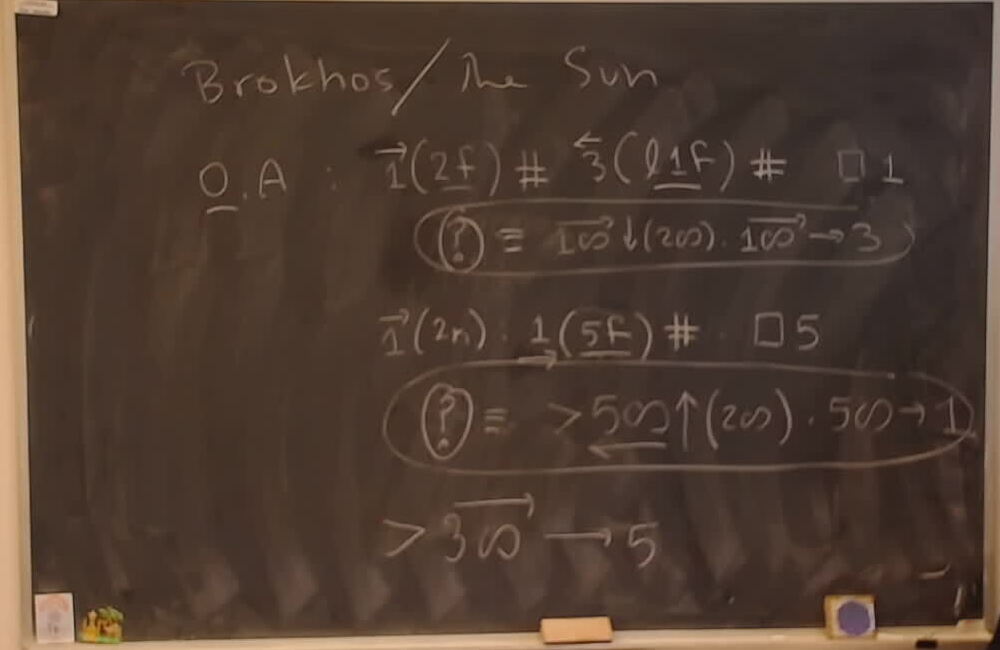 Brokhos/The Sun
O.A : 1(2f) # 3(l1f) # □1
? ≡ 1∞↓(2∞). 1∞→3
1(2n). 1(5f) # . □5
? ≡ >5∞↑(2∞). 5∞→1
>3∞→5